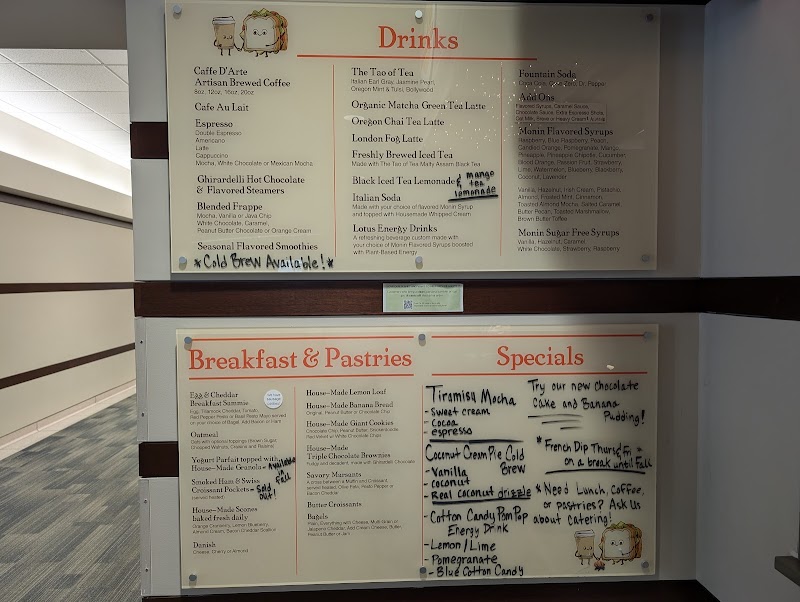 Drinks
Caffe D'Arte
Artisan Brewed Coffee
8oz, 12oz, 16oz, 20oz
Cafe Au Lait
Espresso
Double Espresso
Americano
Latte
Cappuccino
Mocha, White Chocolate or Mexican Mocha
Ghirardelli Hot Chocolate
& Flavored Steamers
Blended Frappe
Mocha, Vanilla or Java Chip
White Chocolate, Caramel,
Peanut Butter Chocolate or Orange Cream
Seasonal Flavored Smoothies
*Cold Brew Available!*
The Tao of Tea
Italian Earl Gray, Jasmine Pearl,
Oregon Mint & Tulsi, Bollywood
Organic Matcha Green Tea Latte
Oregon Chai Tea Latte
London Fog Latte
Freshly Brewed Iced Tea
Made with The Tao of Tea Malty Assam Black Tea
Black Iced Tea Lemonade & mango
tea
lemonade
Italian Soda
Made with your choice of flavored Monin Syrup
and topped with Housemade Whipped Cream
Lotus Energy Drinks
A refreshing beverage custom made with
your choice of Monin Flavored Syrups boosted
with Plant-Based Energy
Fountain Soda
Coca Cola, Coke Zero, Dr. Pepper
Add Ons
Flavored Syrups, Caramel Sauce,
Chocolate Sauce, Extra Espresso Shots,
Oat Milk, Breve or Heavy Cream
Monin Flavored Syrups
Raspberry, Blue Raspberry, Peach,
Candied Orange, Pomegranate, Mango,
Pineapple, Pineapple Chipotle, Cucumber,
Blood Orange, Passion Fruit, Strawberry,
Lime, Watermelon, Blueberry, Blackberry,
Coconut, Lavender
Vanilla, Hazelnut, Irish Cream, Pistachio,
Almond, Frosted Mint, Cinnamon,
Toasted Almond Mocha, Salted Caramel
Butter Pecan, Toasted Marshmallow,
Brown Butter Toffee
Monin Sugar Free Syrups
Vanilla, Hazelnut, Caramel
White Chocolate, Strawberry, Raspberry
Breakfast & Pastries
Egg & Cheddar
Breakfast Sammie
Egg, Tillamook Cheddar, Tomato,
Red Pepper Pesto or Basil Pesto Mayo served
on your choice of Bagel. Add Bacon or Ham
Oatmeal
Oats with special toppings (Brown Sugar,
Chopped Walnuts, Craisins and Raisins)
Yogurt Parfait topped with
House-Made Granola - Available
in
fall
Smoked Ham & Swiss
Croissant Pockets - Sold
out!
(served heated)
House-Made Scones
baked fresh daily
Orange Cranberry, Lemon Blueberry,
Almond Cream, Bacon Cheddar Scallion
Danish
Cheese, Cherry or Almond
House-Made Lemon Loaf
House-Made Banana Bread
Original, Peanut Butter or Chocolate Chip
House-Made Giant Cookies
Chocolate Chip, Peanut Butter, Snickerdoodle,
Red Velvet or White Chocolate Chips
House-Made
Triple Chocolate Brownies
Fudgy and decadent, made with Ghirardelli Chocolate
Savory Marsants
A cross between a Muffin and Croissant,
served heated. Olive Feta, Pesto Pepper or
Bacon Cheddar
Butter Croissants
Bagels
Plain, Everything with Cheese, Multi Grain or
Jalapeno Cheddar. Add Cream Cheese, Butter,
Peanut Butter or Jam
Specials
Tiramisu Mocha
- Sweet cream
- cocoa
espresso
Coconut Cream Pie Cold
Brew
- Vanilla
- coconut
- Real coconut drizzle
- Cotton Candy Pom Pop
Energy Drink
- Lemon/Lime
- Pomegranate
- Blue Cotton Candy
Try our new chocolate
cake and Banana
Pudding!
* French Dip Thurs & Fri *
on a break until Fall
* Need Lunch, Coffee,
or pastries? Ask Us
about Catering!